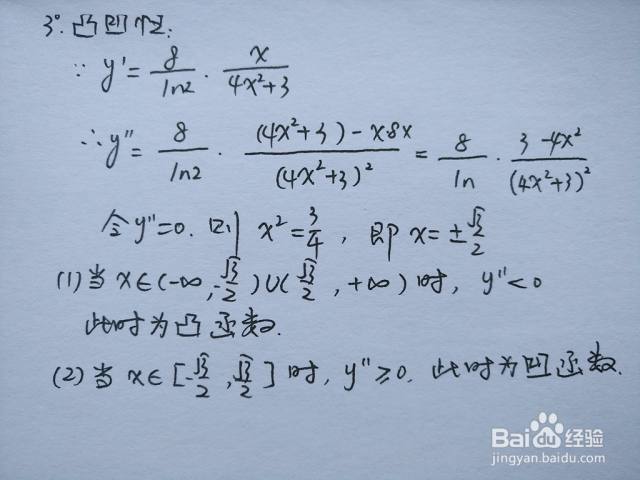 3°. 凸凹性:
∵ y' = 8/ln2 · x/(4x²+3)
∴ y'' = 8/ln2 · ((4x²+3)-x·8x)/(4x²+3)² = 8/ln · (3-4x²)/(4x²+3)²
令y''=0. 则 x²=3/4, 即 x=±√3/2
(1) 当 x∈(-∞,-√3/2)∪(√3/2, +∞) 时, y''<0
此时为凸函数.
(2) 当 x∈[-√3/2, √3/2] 时, y''≥0. 此时为凹函数.
Baidu经验
jingyan.baidu.com